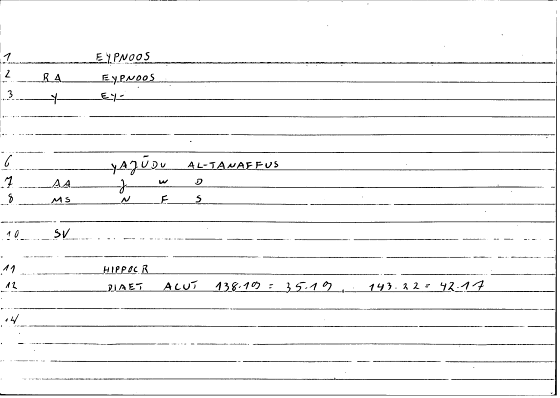 1 EYPNOOS
2 RA EYPNOOS
3 Y EY-
6 YAJŪDU AL-TANAFFUS
7 AA J W D
8 MS N F S
10 SV
11 HIPPOCR
12 DIAET ACUT 138.19 = 35.19, 143.22 = 42.17
14